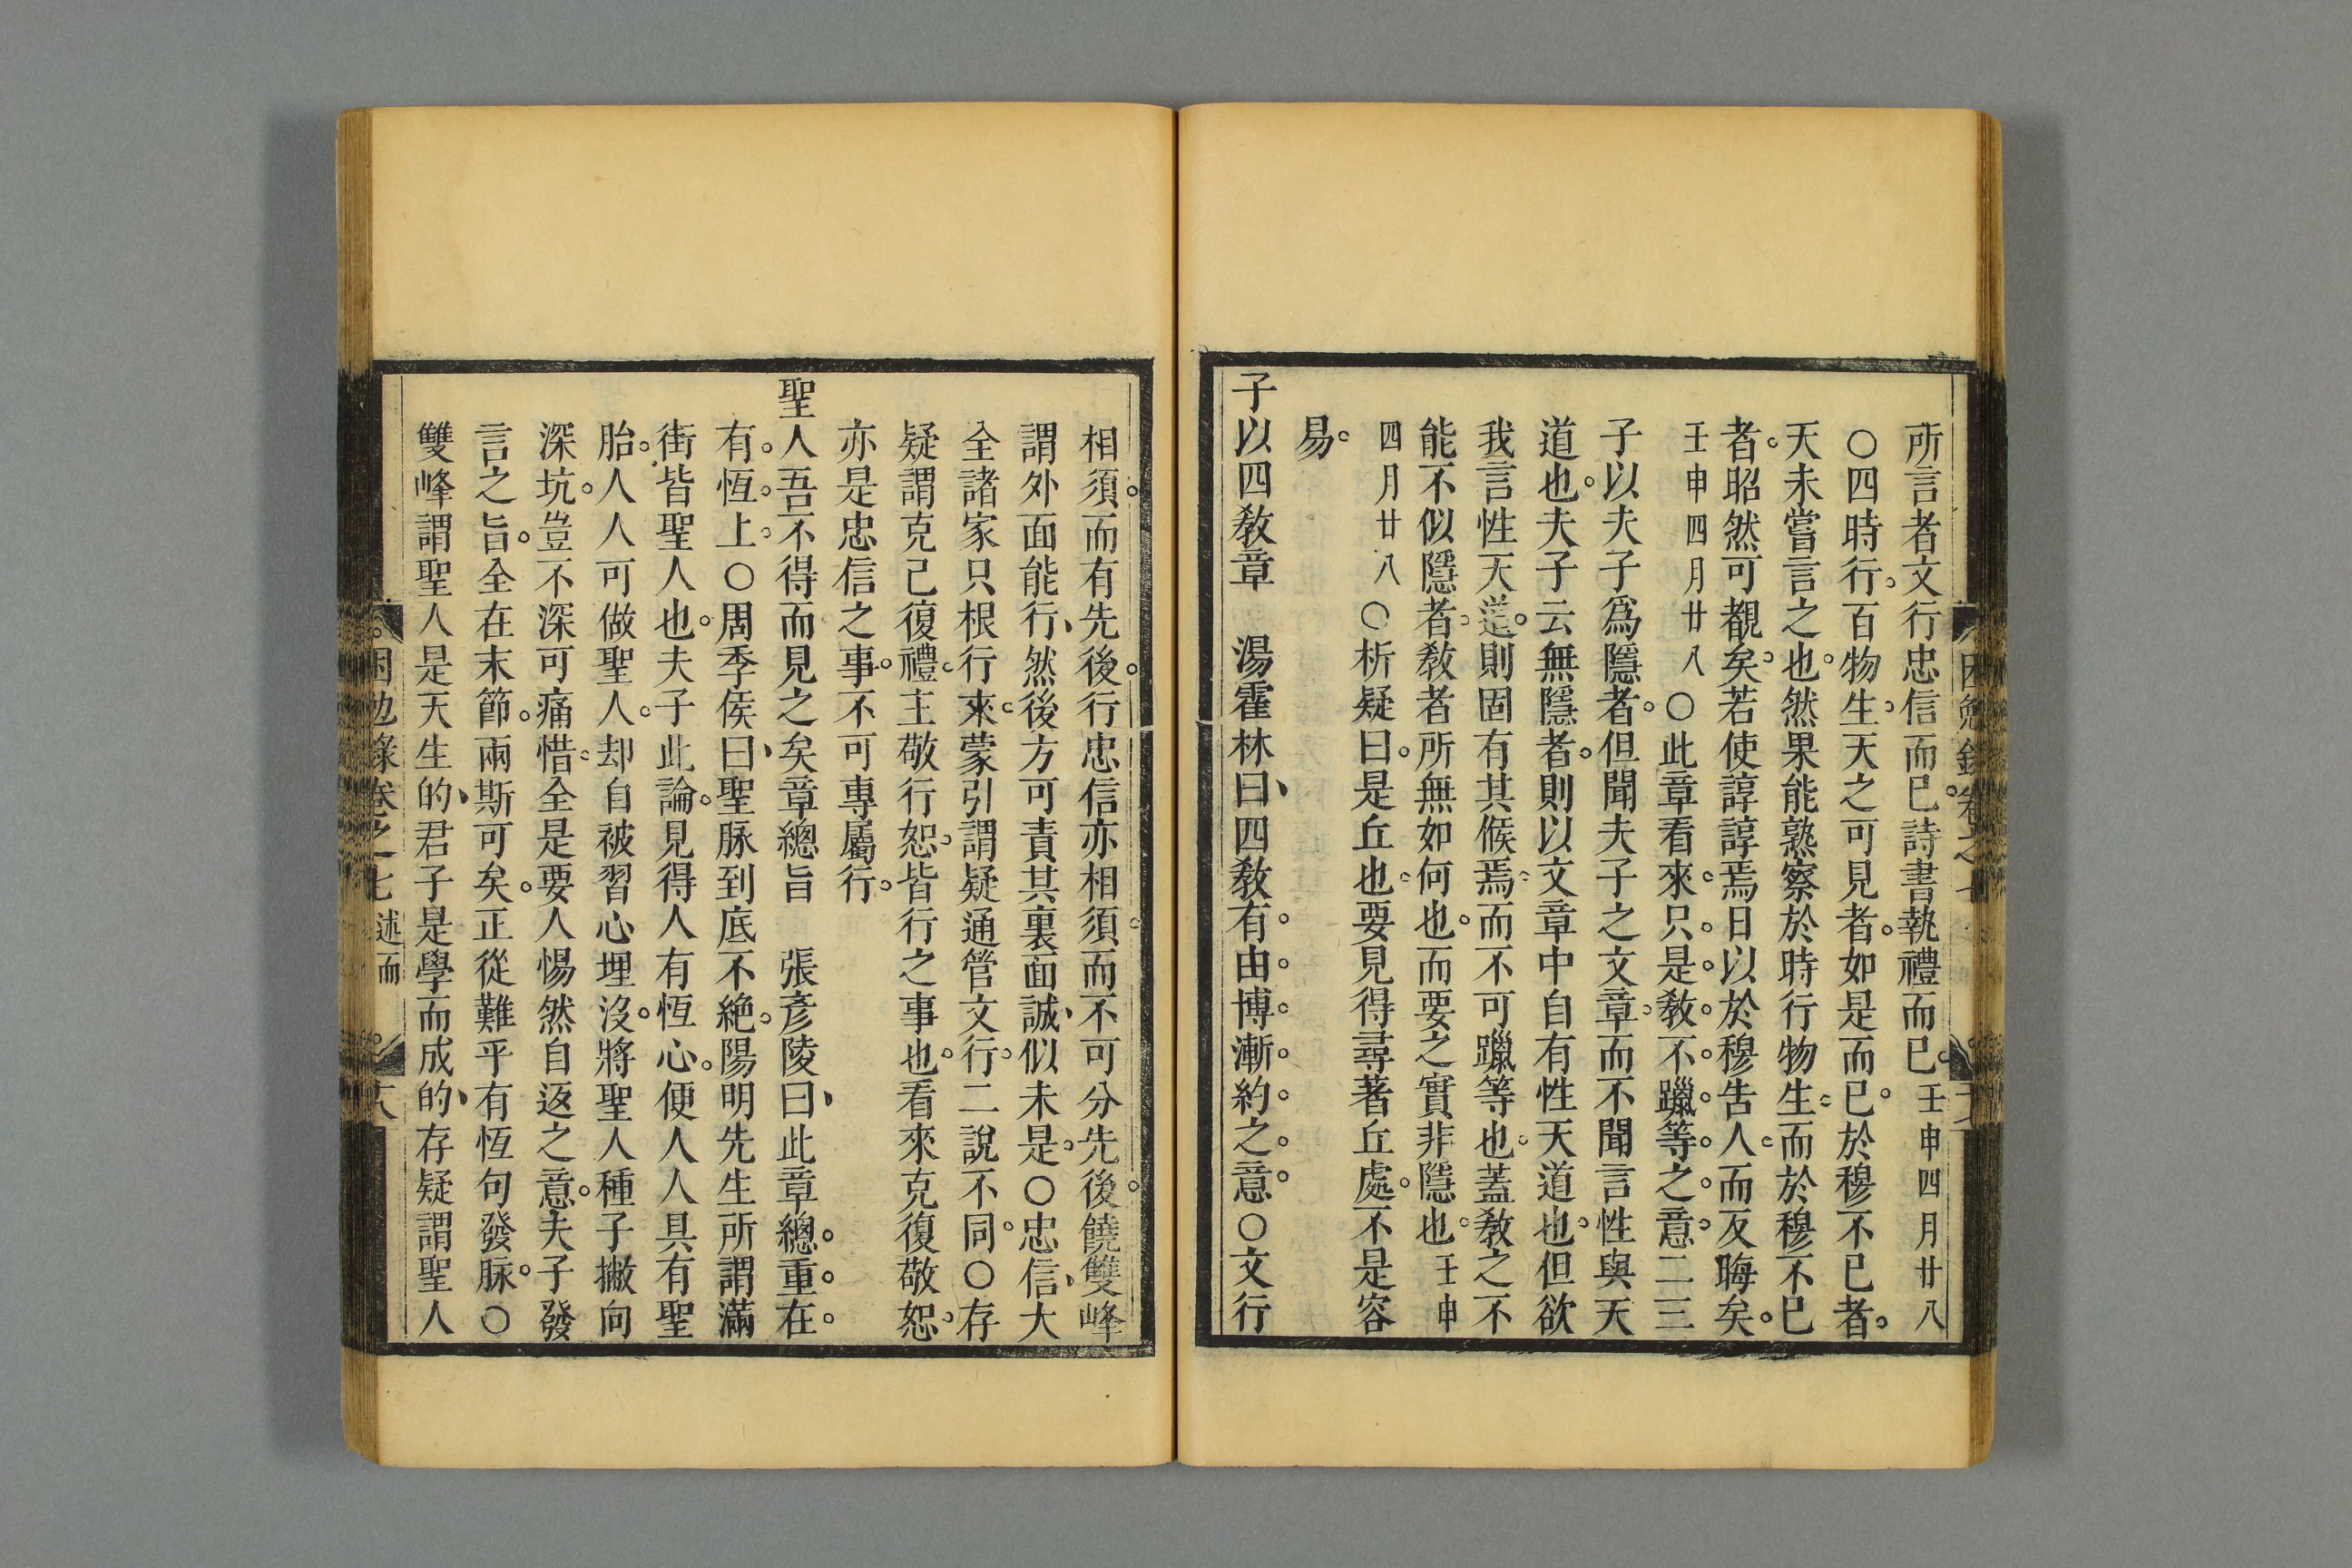 所言者文行忠信而已詩書執禮而已壬申四月廿八
○四時行百物生天之可見者如是而已於穆不已者
天未嘗言之也然果能熟察於時行物生而於穆不已
者昭然可覩矣若使諄諄焉日以於穆告人而反晦矣
壬申四月廿八○此章看來只是教不躐等之意二三
子以夫子爲隱者但聞夫子之文章而不聞言性與天
道也夫子云無隱者則以文章中自有性天道也但欲
我言性天道則固有其候焉而不可躐等也蓋教之不
能不似隱者教者所無如何也而要之實非隱也壬申
四月廿八○析疑曰是丘也要見得尋著丘處不是容
易
子以四教章　湯霍林曰四教有由博漸約之意○文行
相須而有先後行忠信亦相須而不可分先後饒雙峰
謂外面能行然後方可責其裏面誠似未是○忠信大
全諸家只根行來蒙引謂疑通管文行二說不同○存
疑謂克己復禮主敬行恕皆行之事也看來克復敬恕
亦是忠信之事不可專屬行
聖人吾不得而見之矣章總旨　張彥陵曰此章總重在
有恆上○周季侯曰聖脉到底不絶陽明先生所謂滿
街皆聖人也夫子此論見得人有恆心便人人具有聖
胎人人可做聖人却自被習心埋沒將聖人種子撇向
深坑豈不深可痛惜全是要人惕然自返之意夫子發
言之旨全在末節兩斯可矣正從難乎有恆句發脉○
雙峰謂聖人是天生的君子是學而成的存疑謂聖人
困勉錄卷之七 述而 十八